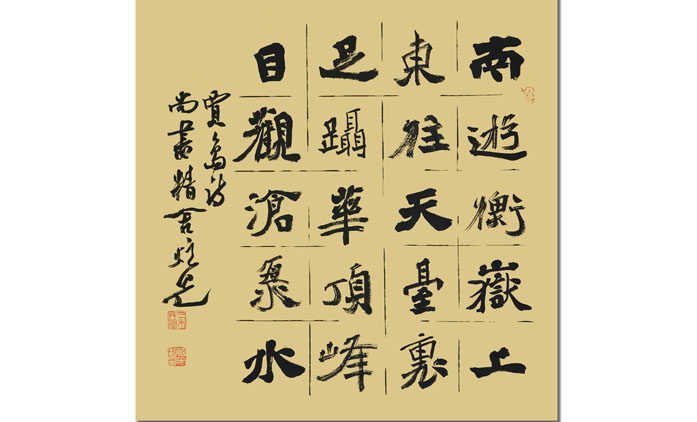 南遊衡嶽上
東往天臺裏
足躡華頂峰
目觀滄溟水
賈島詩
尚書精舍